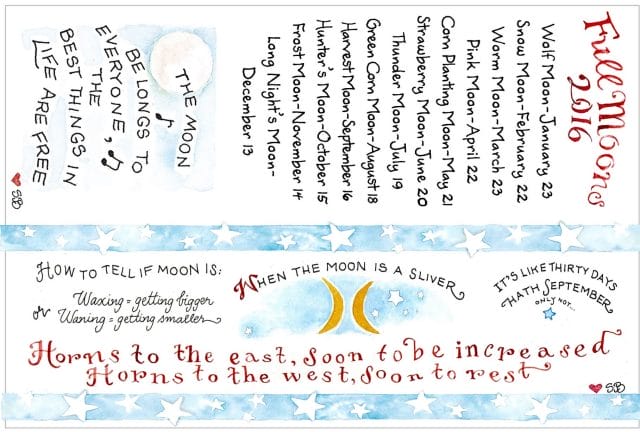 Full Moons
2016
Wolf Moon-January 23
Snow Moon-February 22
Worm Moon-March 23
Pink Moon-April 22
Corn Planting Moon-May 21
Strawberry Moon-June 20
Thunder Moon-July 19
Green Corn Moon-August 18
Harvest Moon-September 16
Hunter's Moon-October 15
Frost Moon-November 14
Long Night's Moon-
December 13
THE MOON
BELONGS TO
EVERYONE,
THE
BEST THINGS IN
LIFE ARE FREE
SSB
HOW TO TELL IF MOON IS:
Waxing = getting bigger
or Waning = getting smaller
WHEN THE MOON IS A SLIVER
IT'S LIKE THIRTY DAYS
HATH SEPTEMBER
ONLY NOT...
Horns to the east, soon to be increased
Horns to the west, soon to rest
SSB